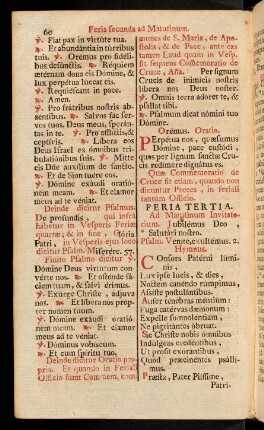 60
Feria secunda ad Matutinum.
℣. Fiat pax in virtúte tua.
℟. Et abundántia in túrribus
tuis. ℣. Orémus pro fidéli-
bus defúnctis. ℟. Réquiem
ætérnam dona eis Dómine, &
lux perpétua lúceat eis.
℣. Requiéscant in pace.
℟. Amen.
℣. Pro frátribus nostris ab-
séntibus. ℟. Salvos fac ser-
vos tuos, Deus meus, sperán-
tes in te. ℣. Pro afflíctis, &
captívis. ℟. Líbera eos
Deus Israel ex ómnibus tri-
bulatiónibus suis. ℣. Mitte
eis Dñe auxílium de sancto.
℟. Et de Sion tuére eos.
℣. Dómine exáudi oratió-
nem meam. ℟. Et clamor
meus ad te véniat.
Deinde dicitur Psalmus
De profundis, qui infrà
habetur in Vesperis Feriæ
quartæ; & in fine, Glória
Patri, in Vesperis ejus loco
dicitur Psalm. Miserére. 57.
Finito Psalmo dicitur ℣.
Dómine Deus virtútum con-
vérte nos. ℟. Et osténde fá-
ciem tuam, & salvi érimus.
℣. Exúrge Christe, ádjuva
nos. ℟. Et líbera nos prop-
ter nomen tuum.
℣. Dómine exáudi oratió-
nem meam. ℟. Et clamor
meus ad te véniat.
℣. Dóminus vobíscum.
℟. Et cum spíritu tuo.
Deinde dicitur Oratio pro-
pria. Et quando in Feriali
Officio fiunt Commem. com-
munes de S. Maria, de Apo-
stolis, & de Pace, ante eas
tamen Laud quam in Vesp.
fit sequens Commemoratio de
Cruce, Aña. Per signum
Crucis de inimícis nostris
líbera nos Deus noster.
℣. Omnis terra adóret te, &
psallat tibi.
℟. Psalmum dicat nómini tuo
Dómine.
Orémus. Oratio.
Perpétua nos, quæsumus
Dómine, pace custódi,
quos per lignum sanctæ Crucis
redímere dignátus es.
Quæ Commemoratio de
Cruce fit etiam, quando non
dicuntur Preces, in feriali
tantùm Officio.
FERIA TERTIA.
Ad Matutinum Invitato-
rium. Jubilémus Deo,
Salutári nostro.
Psalm. Veníte, exultémus. 2.
Hymnus.
Consors Patérni lúmi-
nis,
Lux ipse lucis, & dies,
Noctem canéndo rúmpimus,
Assíste postulántibus.
Aufer ténebras méntium:
Fuga catérvas dǽmonum:
Expélle somnoléntiam,
Ne pigritántes óbruat.
Sic Christe nobis ómnibus
Indúlgeas credéntibus,
Ut prosit exorántibus,
Quod præcinéntes psálli-
mus.
Præsta, Pater Piíssime,
Patri-